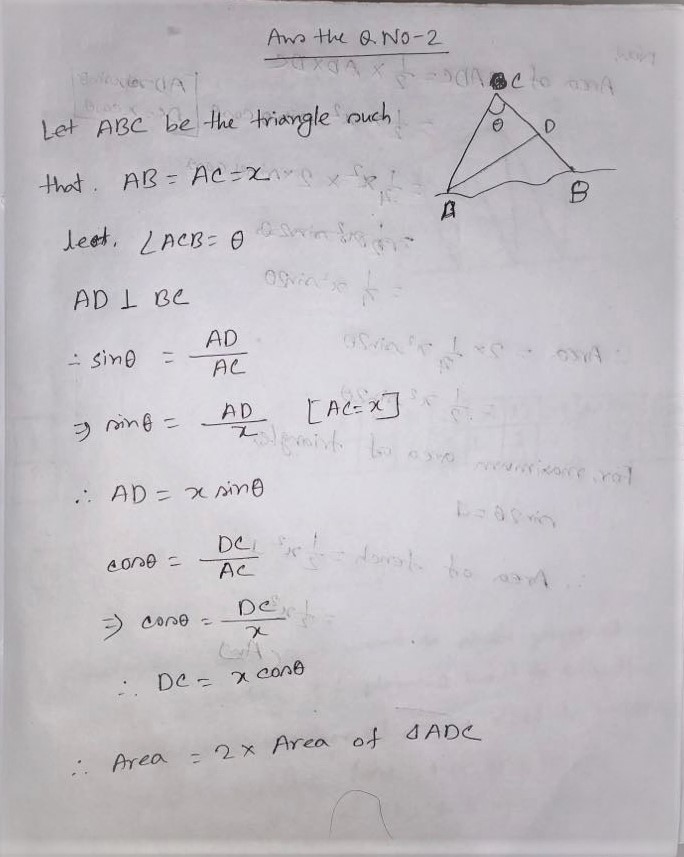 Ans the Q. NO-2
C
θ
D
A
B
Let ABC be the triangle such
that. AB = AC = x
leet, ∠ACB = θ
AD ⊥ BC
∴ sinθ = AD/AC
⇒ sinθ = AD/x [AC = x]
∴ AD = x sinθ
cosθ = DC/AC
⇒ cosθ = DC/x
∴ DC = x cosθ
∴ Area = 2 x Area of ΔADC